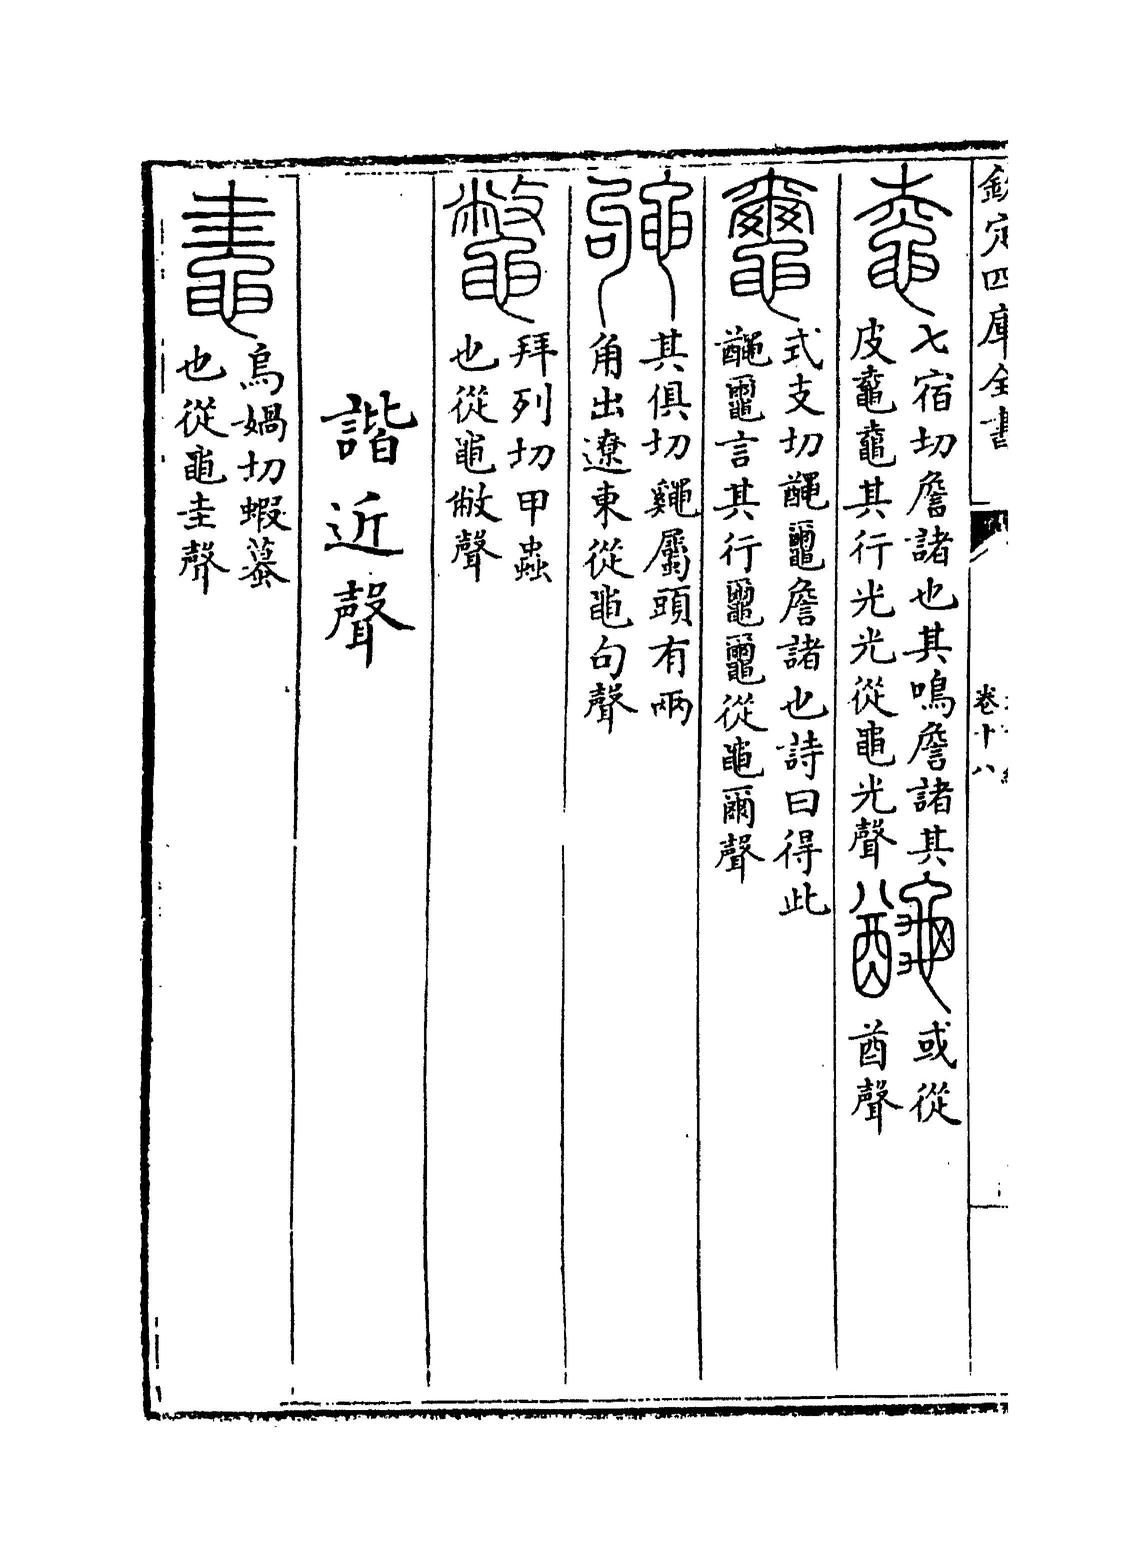 欽定四庫全書
卷十八
鼀
七宿切詹諸也其鳴詹諸其
皮鼀鼀其行光光從黽光聲
𪓰
或從
酋聲
𪓿
式支切𪓰𪓿詹諸也詩曰得此
𪓰𪓿言其行𪓿𪓿從黽爾聲
䵶
其俱切𪓷屬頭有兩
角出遼東從黽句聲
鼈
拜列切甲蟲
也從黽敝聲
諧近聲
鼃
烏媧切蝦蟇
也從黽圭聲